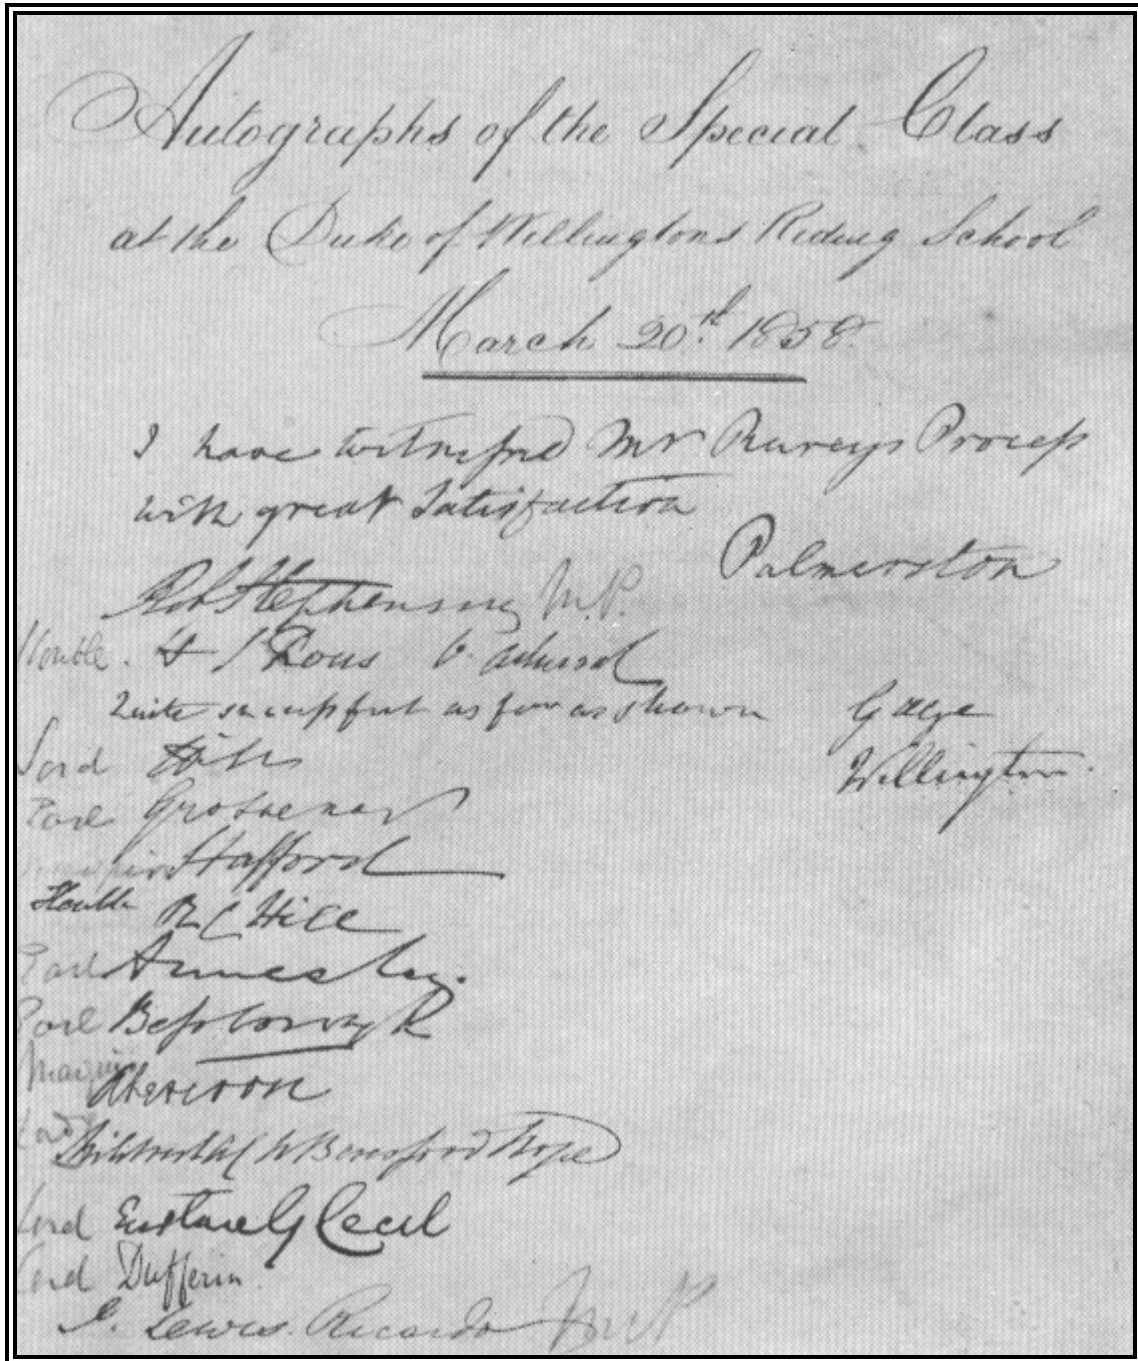 Autographs of the Special Class
at the Duke of Wellingtons Riding School
March 20th. 1858.
I have witnessed Mr Rareys Process
with great Satisfaction
Palmerston
Rob Stephenson M.P.
Honble. H J Rous V. Admiral
Quite successful as far as shown Gage
Lord Wellington.
Earl Grosvenor
Stafford
Honble R C Hill
Earl Annesley.
Earl Bessborough
Marquis Abercorn
Lady W Beresford Hope
Lord Eustace G Cecil
Lord Dufferin.
J. Lewis Ricardo M P